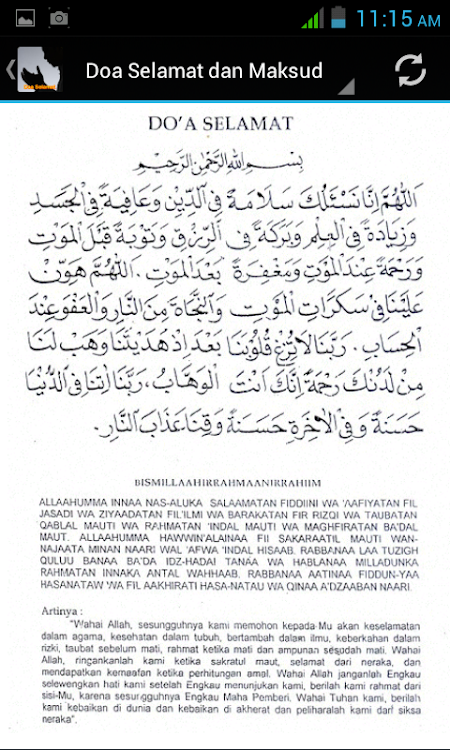 11:15 AM
Doa Selamat dan Maksud
DO'A SELAMAT
بِسْمِ اللهِ الرَّحْمٰنِ الرَّحِيْمِ
اَللّٰهُمَّ اِنَّا نَسْئَلُكَ سَلَامَةً فِى الدِّيْنِ وَعَافِيَةً فِى الْجَسَدِ
وَزِيَادَةً فِى الْعِلْمِ وَبَرَكَةً فِى الرِّزْقِ وَتَوْبَةً قَبْلَ الْمَوْتِ
وَرَحْمَةً عِنْدَ الْمَوْتِ وَمَغْفِرَةً بَعْدَ الْمَوْتِ. اَللّٰهُمَّ هَوِّنْ
عَلَيْنَا فِى سَكَرَاتِ الْمَوْتِ وَالنَّجَاةَ مِنَ النَّارِ وَالْعَفْوَ عِنْدَ
الْحِسَابِ. رَبَّنَا لَا تُزِغْ قُلُوْبَنَا بَعْدَ اِذْ هَدَيْتَنَا وَهَبْ لَنَا
مِنْ لَدُنْكَ رَحْمَةً اِنَّكَ اَنْتَ الْوَهَّابُ، رَبَّنَا اٰتِنَا فِى الدُّنْيَا
حَسَنَةً وَفِى الْاٰخِرَةِ حَسَنَةً وَقِنَا عَذَابَ النَّارِ.
BISMILLAAHIRRAHMAANIRRAHIIM
ALLAAHUMMA INNAA NAS-ALUKA SALAAMATAN FIDDIINI WA 'AAFIYATAN FIL
JASADI WA ZIYAADATAN FIL'ILMI WA BARAKATAN FIR RIZQI WA TAUBATAN
QABLAL MAUTI WA RAHMATAN 'INDAL MAUTI WA MAGHFIRATAN BA'DAL
MAUT. ALLAAHUMMA HAWWIN'ALAINAA FII SAKARAATIL MAUTI WAN-
NAJAATA MINAN NAARI WAL 'AFWA 'INDAL HISAAB. RABBANAA LAA TUZIGH
QULUU BANAA BA'DA IDZ-HADAI TANAA WA HABLANAA MILLADUNKA
RAHMATAN INNAKA ANTAL WAHHAAB. RABBANAA AATINAA FIDDUN-YAA
HASANATAW WA FIL AAKHIRATI HASA-NATAU WA QINAA A'DZAABAN NAARI.
Artinya :
"Wahai Allah, sesungguhnya kami memohon kepada-Mu akan keselamatan
dalam agama, kesehatan dalam tubuh, bertambah dalam ilmu, keberkahan dalam
rizki, taubat sebelum mati, rahmat ketika mati dan ampunan sesudah mati. Wahai
Allah, ringankanlah kami ketika sakratul maut, selamat dari neraka, dan
mendapatkan kemaafan ketika perhitungan amal. Wahai Allah janganlah Engkau
selewengkan hati kami setelah Engkau menunjukan kami, berilah kami rahmat dari
sisi-Mu, karena sesungguhnya Engkau Maha Pemberi. Wahai Tuhan kami, berilah
kami kebaikan di dunia dan kebaikan di akherat dan peliharalah kami dari siksa
neraka".